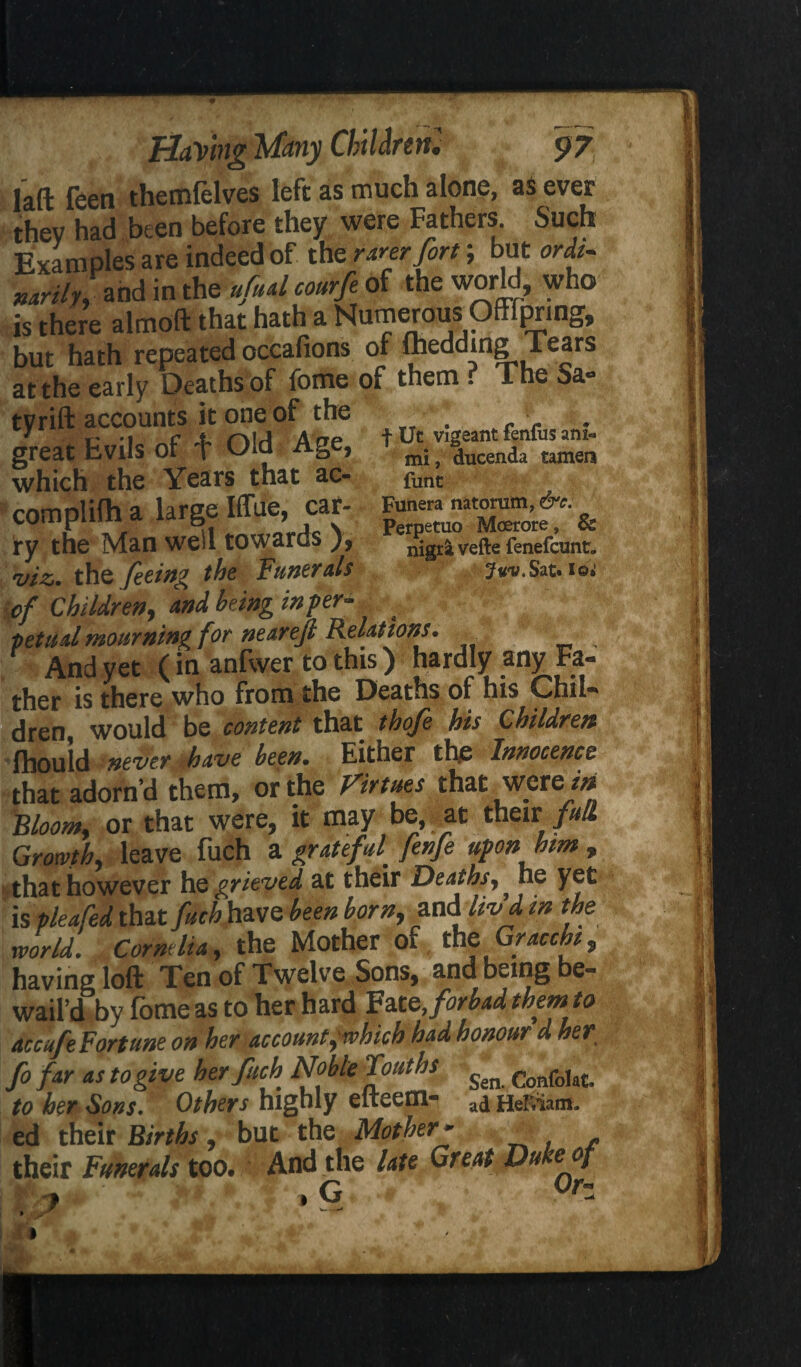 Having Many Children. 97
laſt ſeen themſelves left as much alone, as ever
they had been before they were Fathers. Such
Examples are indeed of the rarer ſort; but ordi-
narily, and in the uſual courſe of the world, who
is there almoſt that hath a Numerous Offſpring,
but hath repeated occaſions of ſhedding Tears
at the early Deaths of ſome of them? The Sa-
tyriſt accounts it one of the
great Evils of † Old Age,
which the Years that ac-
compliſh a large Iſſue, car-
ry the Man well towards),
viz. the ſeeing the Funerals
of Children, and being in per-
petual mourning for neareſt Relations.
† Ut vigeant ſenſus ani-
mi, ducenda tamen
ſunt
Funera natorum, &c.
Perpetuo Mœrore, &
nigrâ veſte ſeneſcunt.
Juv. Sat. 10.
And yet (in anſwer to this) hardly any Fa-
ther is there who from the Deaths of his Chil-
dren, would be content that thoſe his Children
ſhould never have been. Either the Innocence
that adorn'd them, or the Virtues that were in
Bloom, or that were, it may be, at their full
Growth, leave ſuch a grateful ſenſe upon him,
that however he grieved at their Deaths, he yet
is pleaſed that ſuch have been born, and liv'd in the
world. Cornelia, the Mother of the Gracchi,
having loſt Ten of Twelve Sons, and being be-
wail'd by ſome as to her hard Fate, forbad them to
accuſe Fortune on her account, which had honour'd her
ſo far as to give her ſuch Noble Youths
to her Sons. Others highly eſteem-
ed their Births, but the Mother
their Funerals too. And the late Great Duke of
Sen. Conſolat.
ad Helviam.
G
Or-